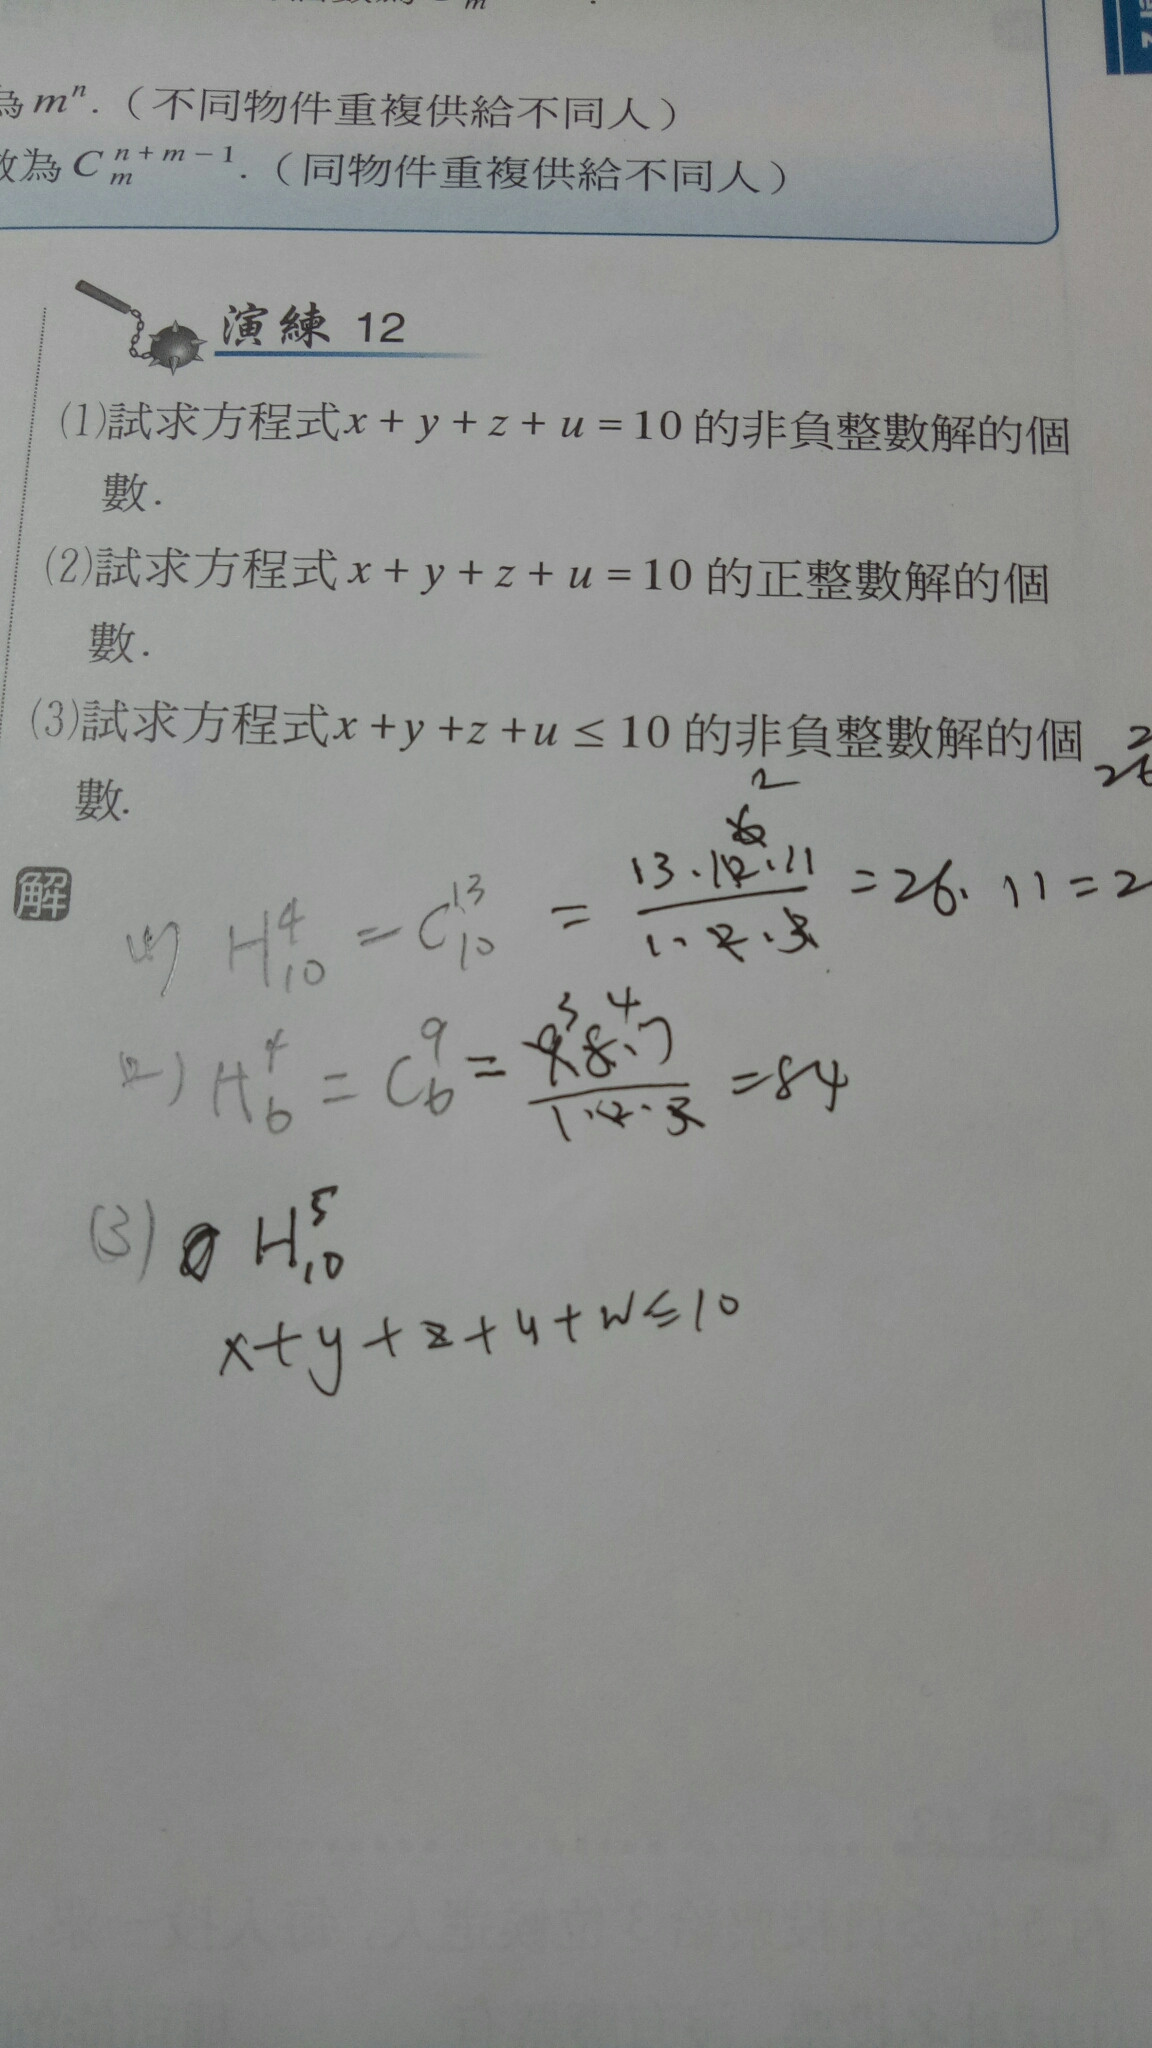 為 mⁿ.（不同物件重複供給不同人）
數為 C n+m−1 m .（同物件重複供給不同人）
演練 12
(1)試求方程式 x + y + z + u = 10 的非負整數解的個
數.
(2)試求方程式 x + y + z + u = 10 的正整數解的個
數.
(3)試求方程式 x + y + z + u ≤ 10 的非負整數解的個
數.
解
(1) H⁴₁₀ = C¹³₁₀ = 13·12·11 / 1·2·3 = 26·11 = 2
6 2
(2) H⁴₆ = C⁹₆ = 9·8·7 / 1·2·3 = 84
3 4
(3) H⁵₁₀
x+y+z+u+w≤10